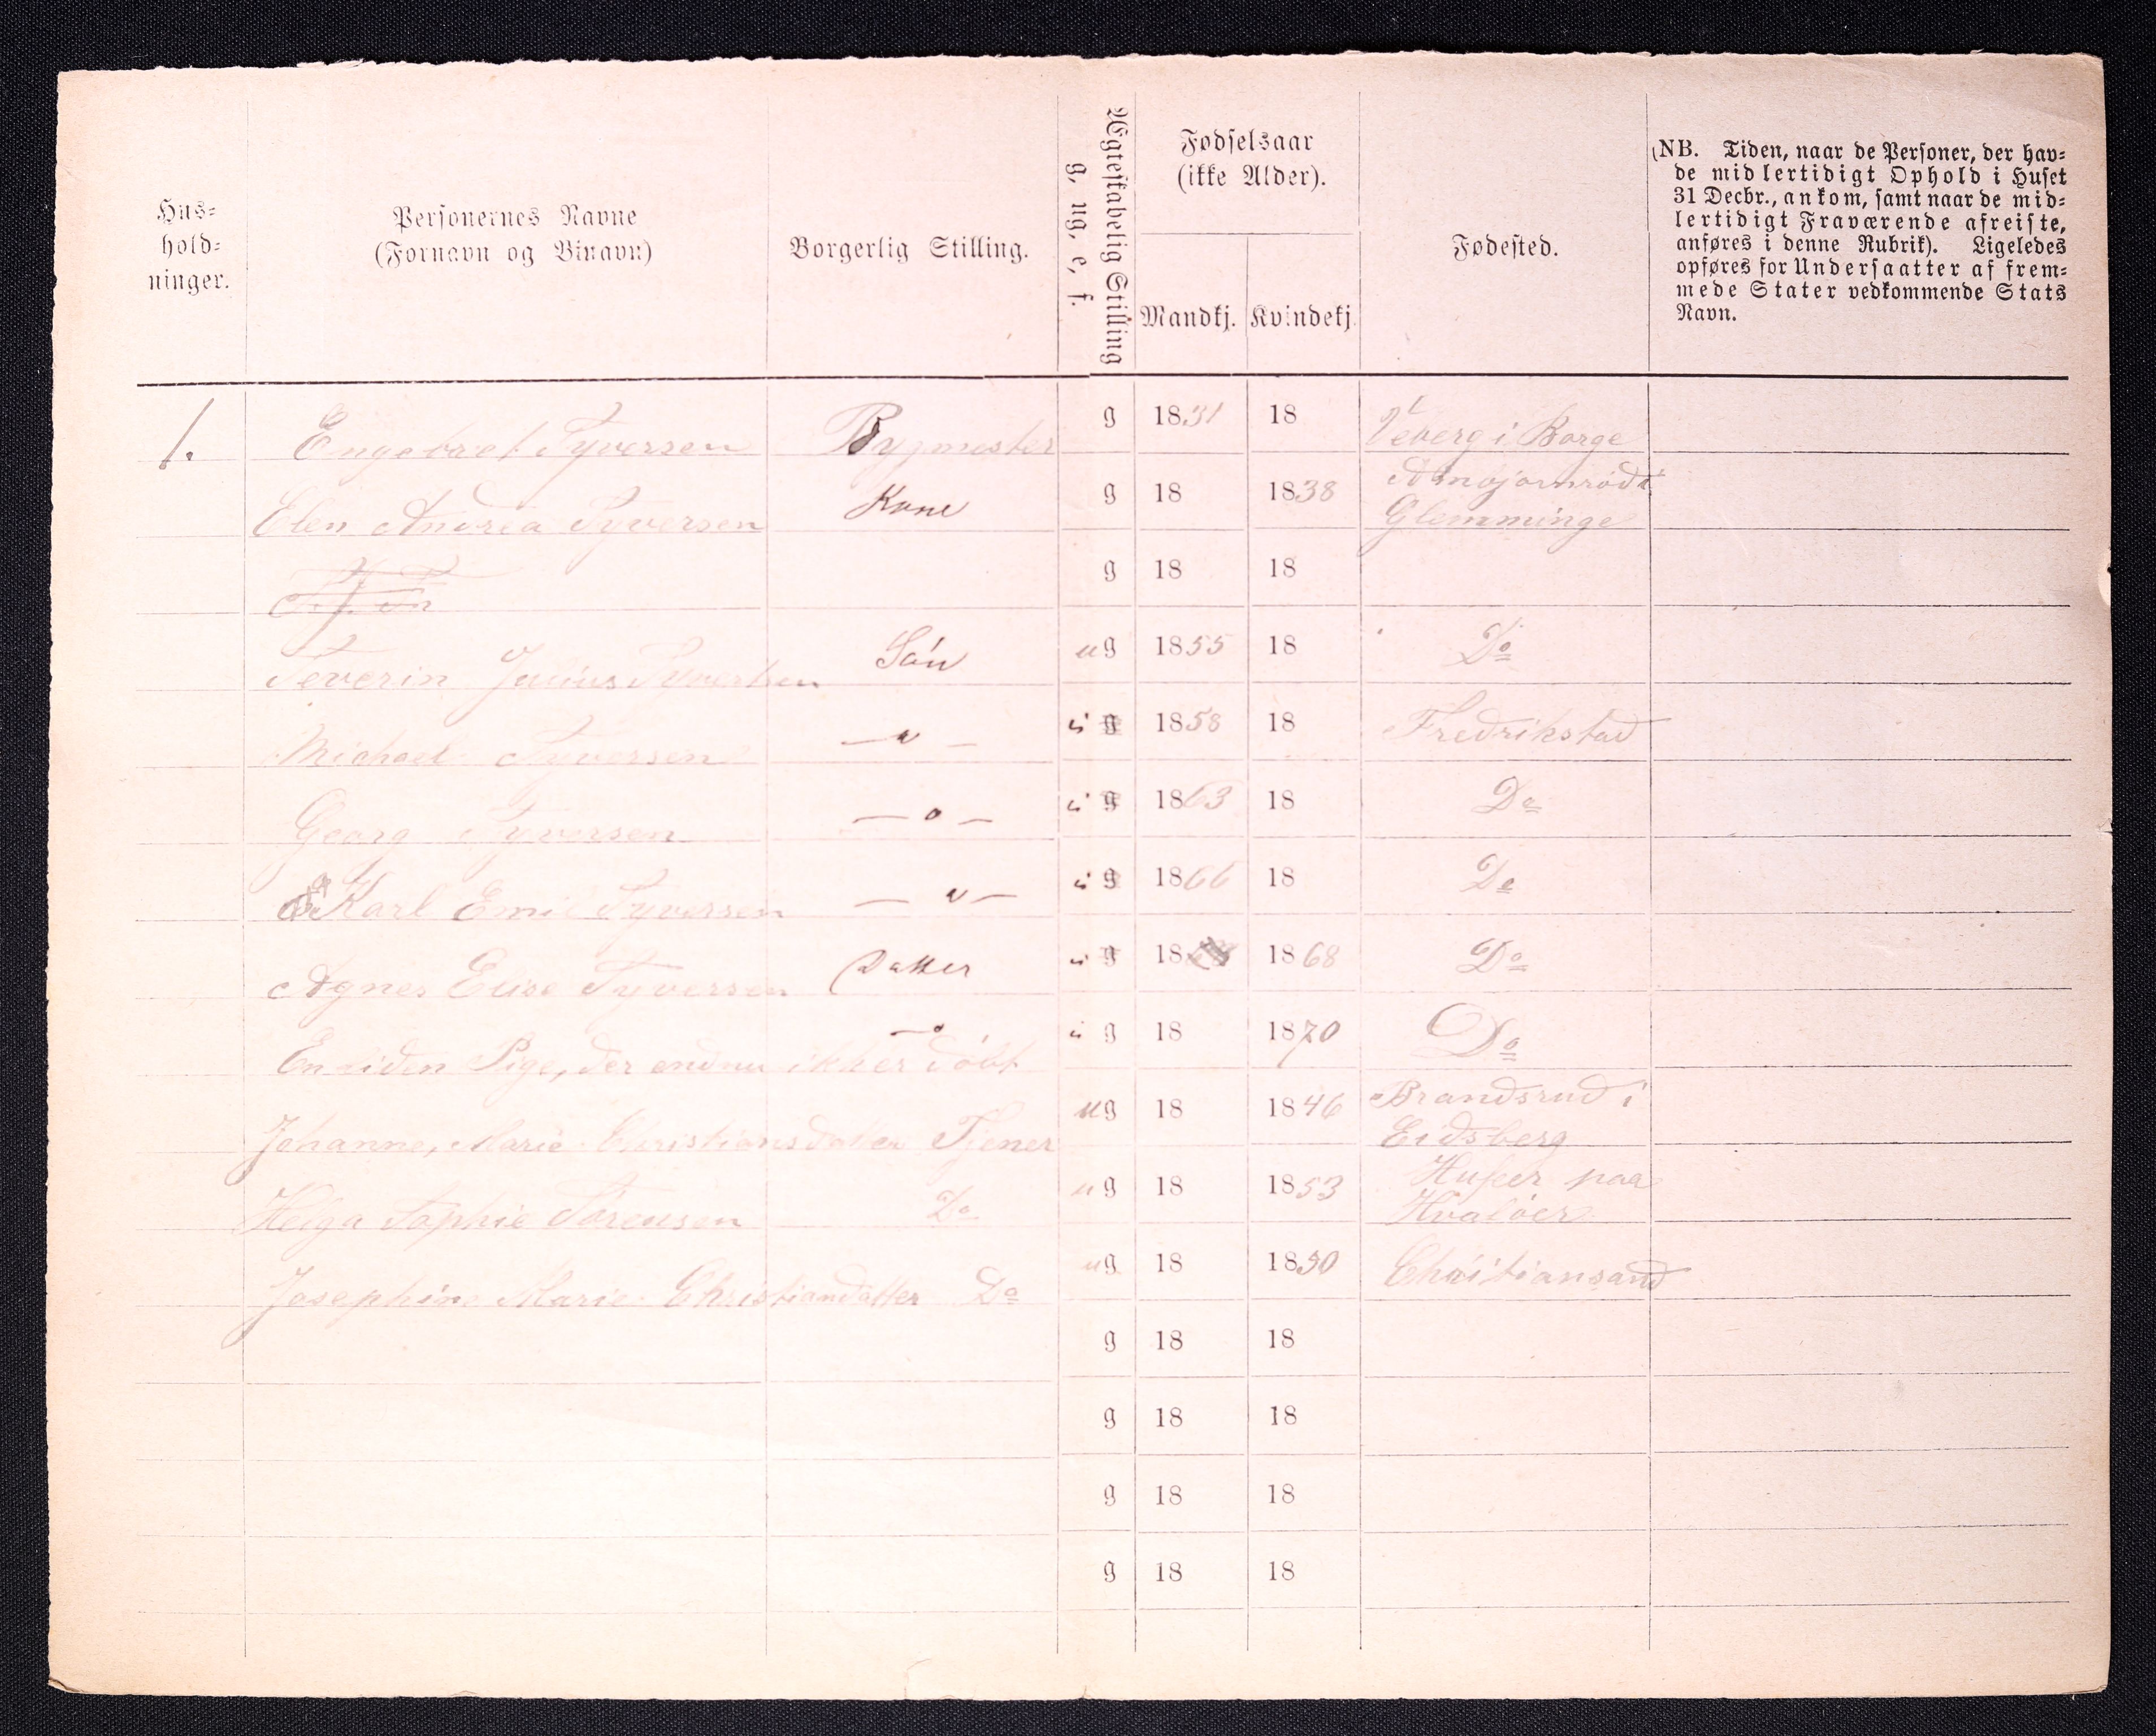 Hus-
hold-
ninger.
Personernes Navne
(Fornavn og Binavn)
Borgerlig Stilling.
Ægteskabelig Stilling
g, ug, e, f.
Fødselsaar
(ikke Alder).
Mandkj. Kvindekj.
Fødested.
(NB. Tiden, naar de Personer, der hav-
de midlertidigt Ophold i Huset
31 Decbr., ankom, samt naar de mid-
lertidigt Fraværende afreiste,
anføres i denne Rubrik). Ligeledes
opføres for Undersaatter af frem-
mede Stater vedkommende Stats
Navn.
1. Engebret Syversen Bygmester g 1831 18 i Borge
Elen Andrea Syversen Kone g 18 1838
Glemminge
g 18 18
Severin Julius Syvertsen Sön ug 1855 18 Do
Michael Syversen — " — u g 1858 18 Fredrikstad
Georg Syversen — " — u g 1863 18 Do
Karl Emil Syversen — " — u g 1866 18 Do
Agnes Elise Syversen Datter u g 18 1868 Do
En liden Pige, der endnu ikke er döbt — " u g 18 1870 Do
Johanne, Marie Christiansdatter Tjener ug 18 1846 Brandsrud i
Eidsberg
Helga Sophie Sörensen Do ug 18 1853 paa
Hvalöer
Josephine Marie Christiandatter Do ug 18 1850 Christiansand
g 18 18
g 18 18
g 18 18
g 18 18